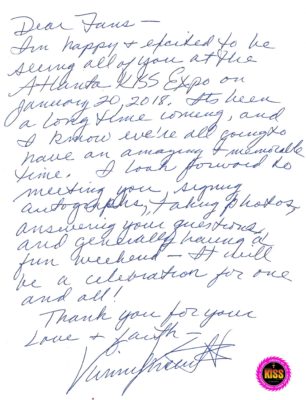 Dear Fans —
I'm happy & excited to be
seeing all of you at the
Atlanta KISS Expo on
January 20, 2018. It's been
a long time coming, and
I know we're all going to
have an amazing & memorable
time. I look forward to
meeting you, signing
autographs, taking photos,
answering your questions,
and generally having a
fun weekend — It will
be a celebration for one
and all!
Thank you for your
Love & faith —
Vinnie Vincent
KISS